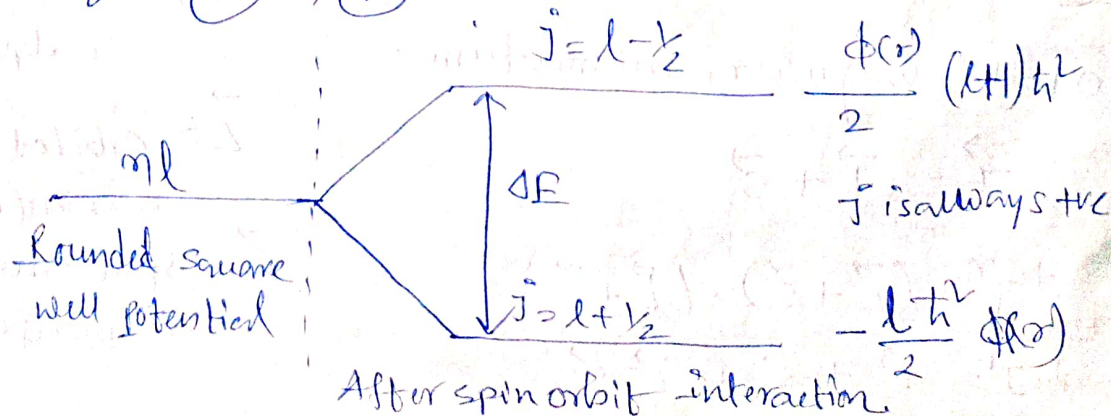 j = l - 1/2
ϕ(r)/2 (l+1)ħ²
nl
ΔE
j is allways +ve
Rounded square
well potential
j = l + 1/2
- lħ²/2 ϕ(r)
After spin orbit interaction.